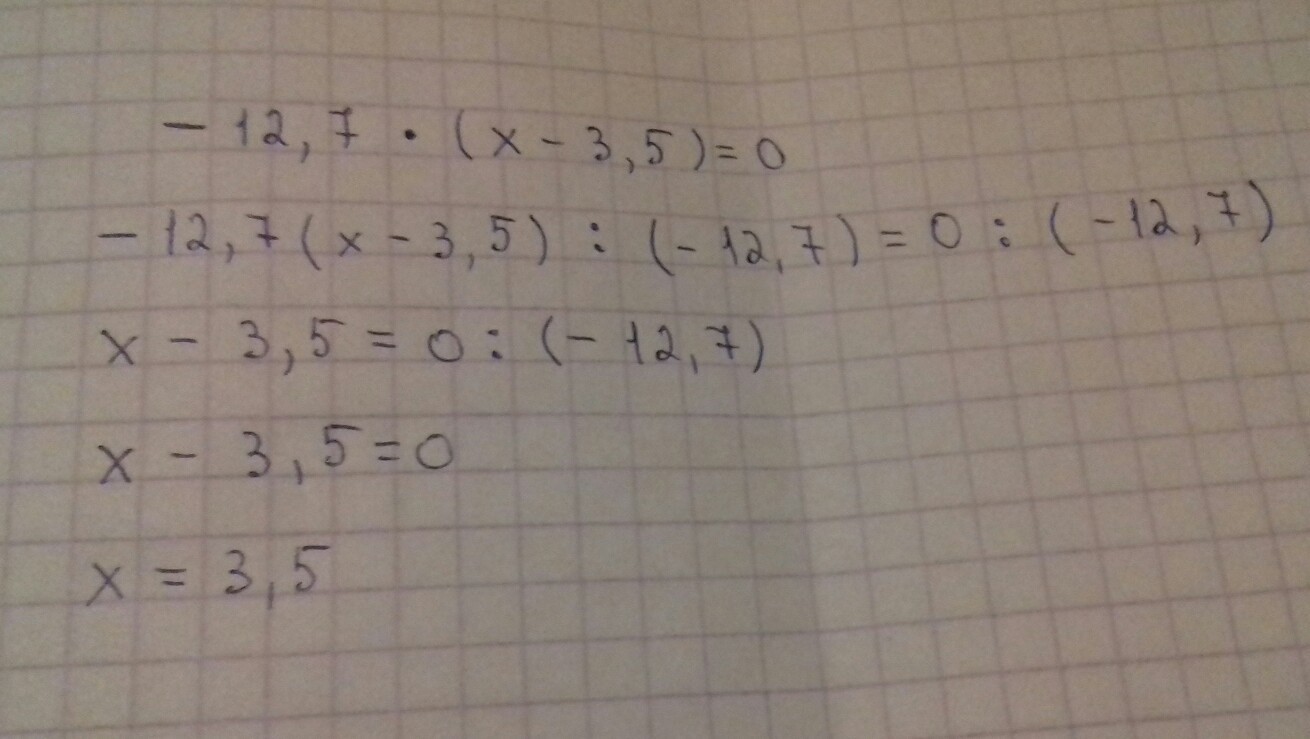 - 12,7 · (x - 3,5) = 0
- 12,7(x - 3,5) : (-12,7) = 0 : (-12,7)
x - 3,5 = 0 : (-12,7)
x - 3,5 = 0
x = 3,5